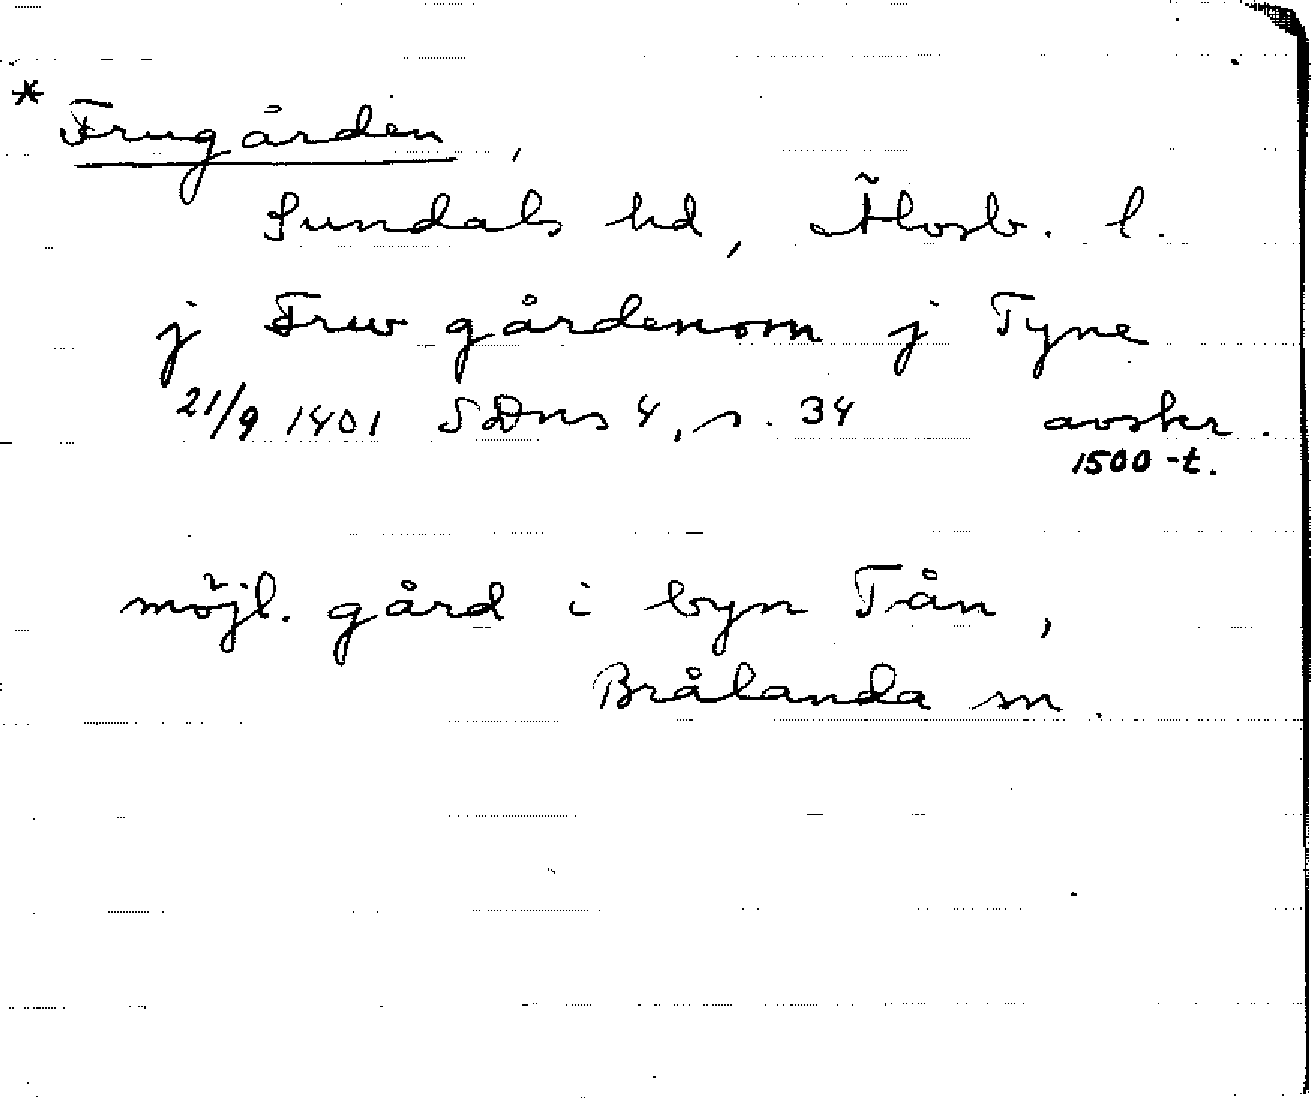 * Frugården,
Sundals hd, Älvsb. l.
j Frw gårdenom j Tyne
21/9 1401 SDns 4, s. 34 avskr.
1500-t.
möjl. gård i byn Tån,
Brålanda sn.